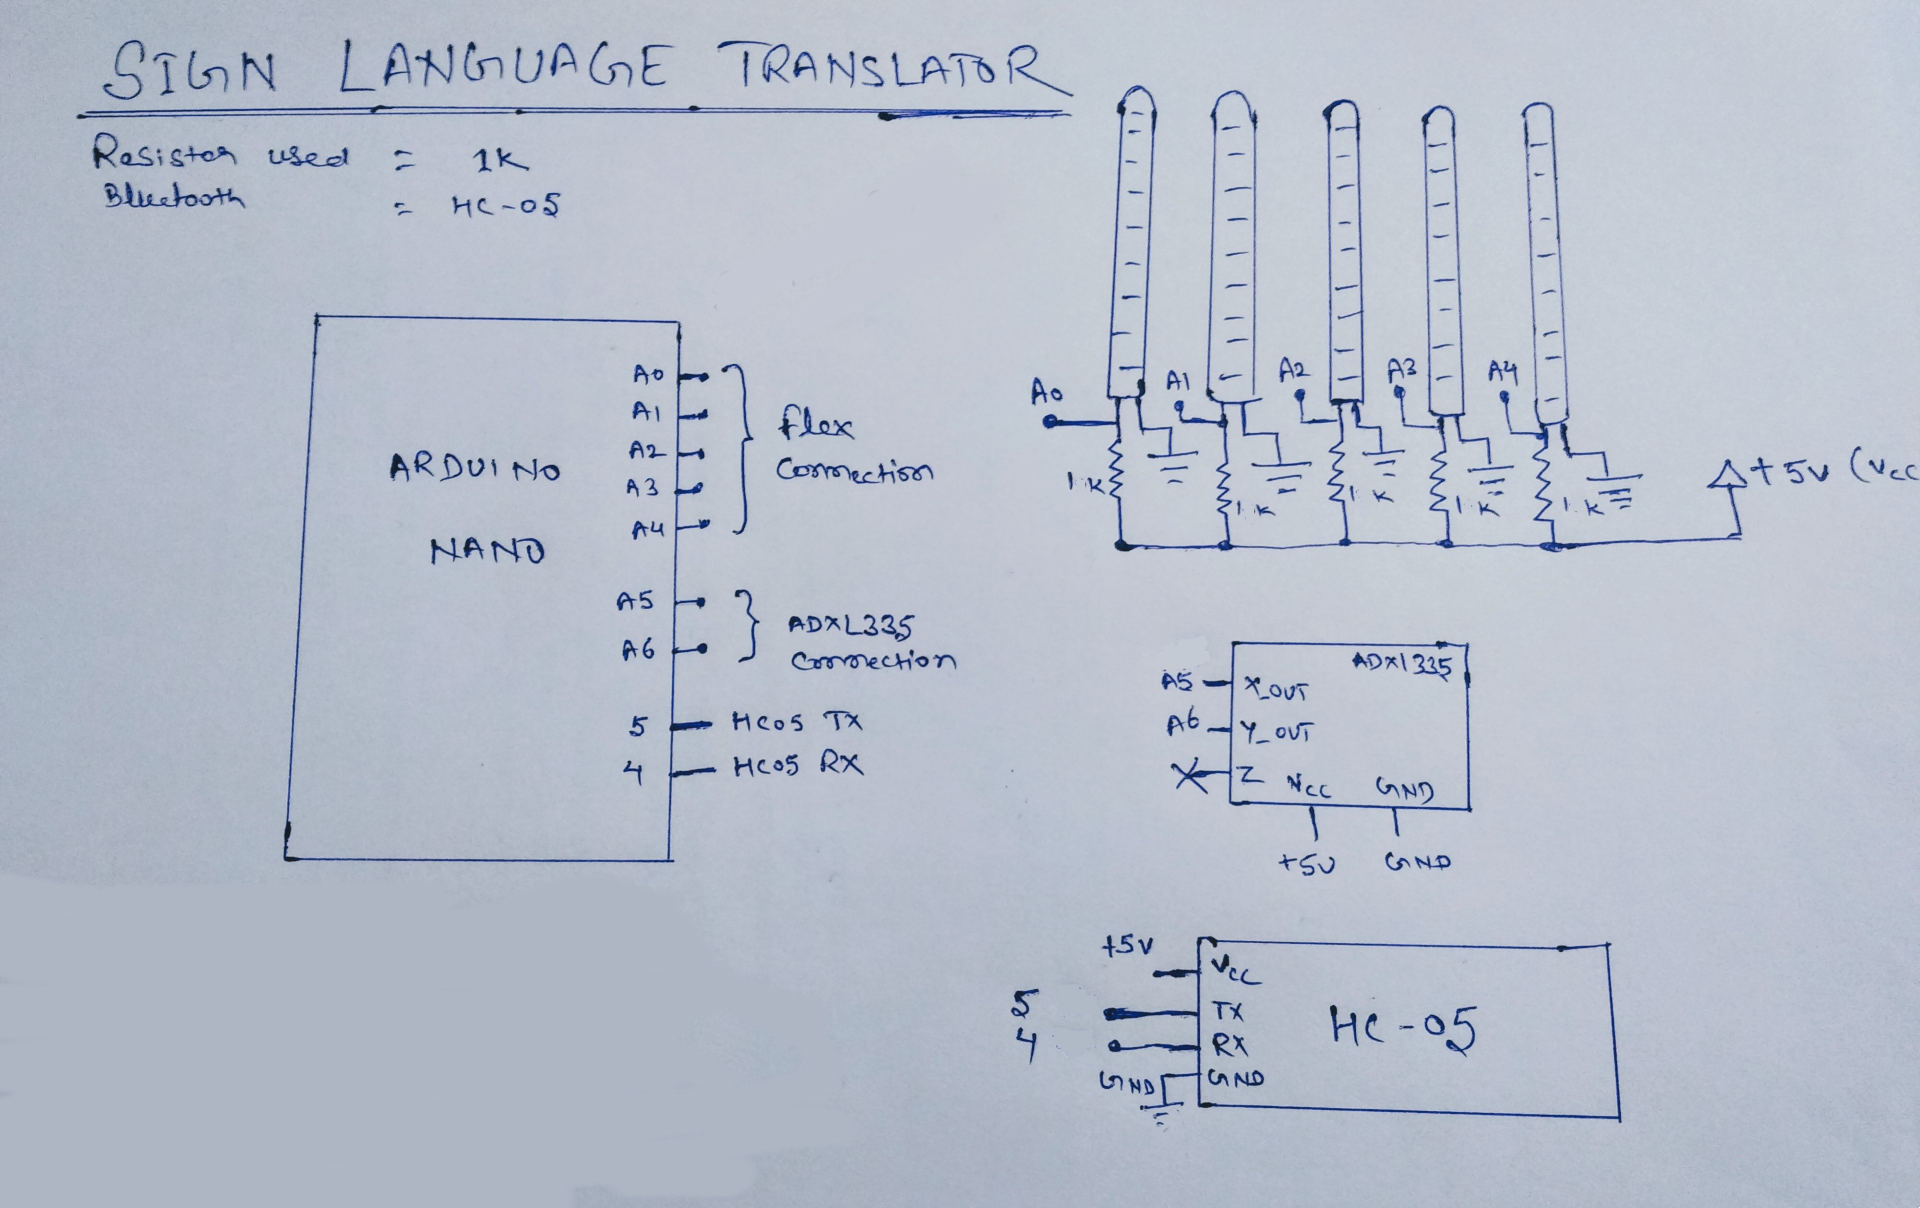 SIGN LANGUAGE TRANSLATOR
Resistor used = 1K
Bluetooth = HC-05
ARDUINO
NANO
A0
A1
A2
A3
A4
flex
Connection
A5
A6
ADXL335
Connection
5 HC05 TX
4 HC05 RX
A0 A1 A2 A3 A4
1K 1K 1K 1K 1K
+5V (Vcc
ADXL335
A5 X_OUT
A6 Y_OUT
X Z
Vcc GND
+5V GND
+5V Vcc
5 TX
4 RX
GND GND
HC-05